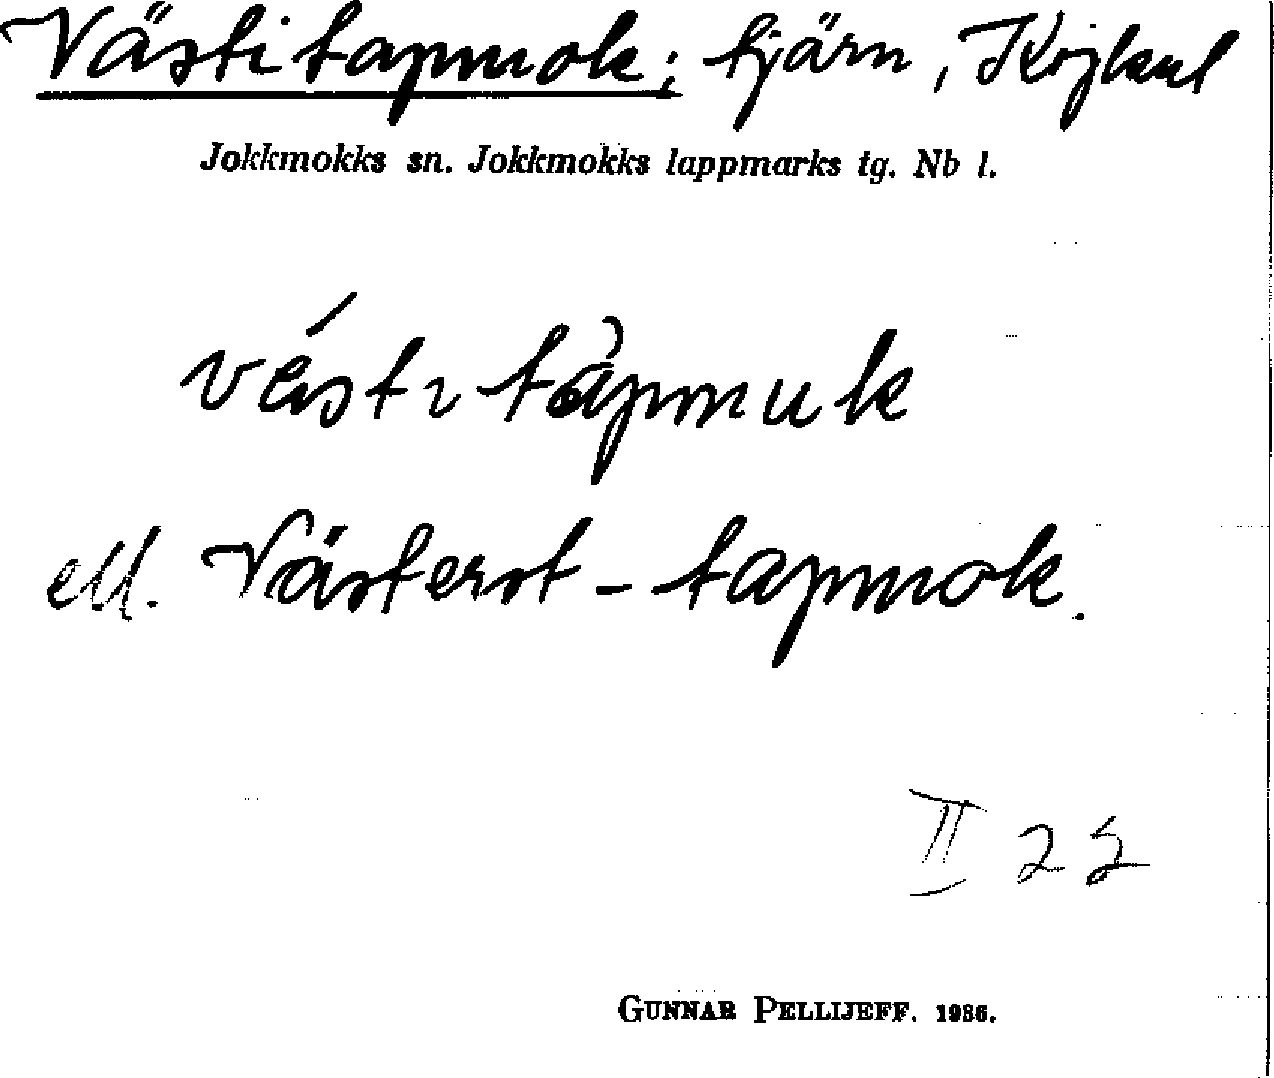 Västitapmok; tjärn, Kojkul
Jokkmokks sn. Jokkmokks lappmarks tg. Nb l.
ell. Västerst-tapmok.
II 22
GUNNAR PELLIJEFF. 1936.